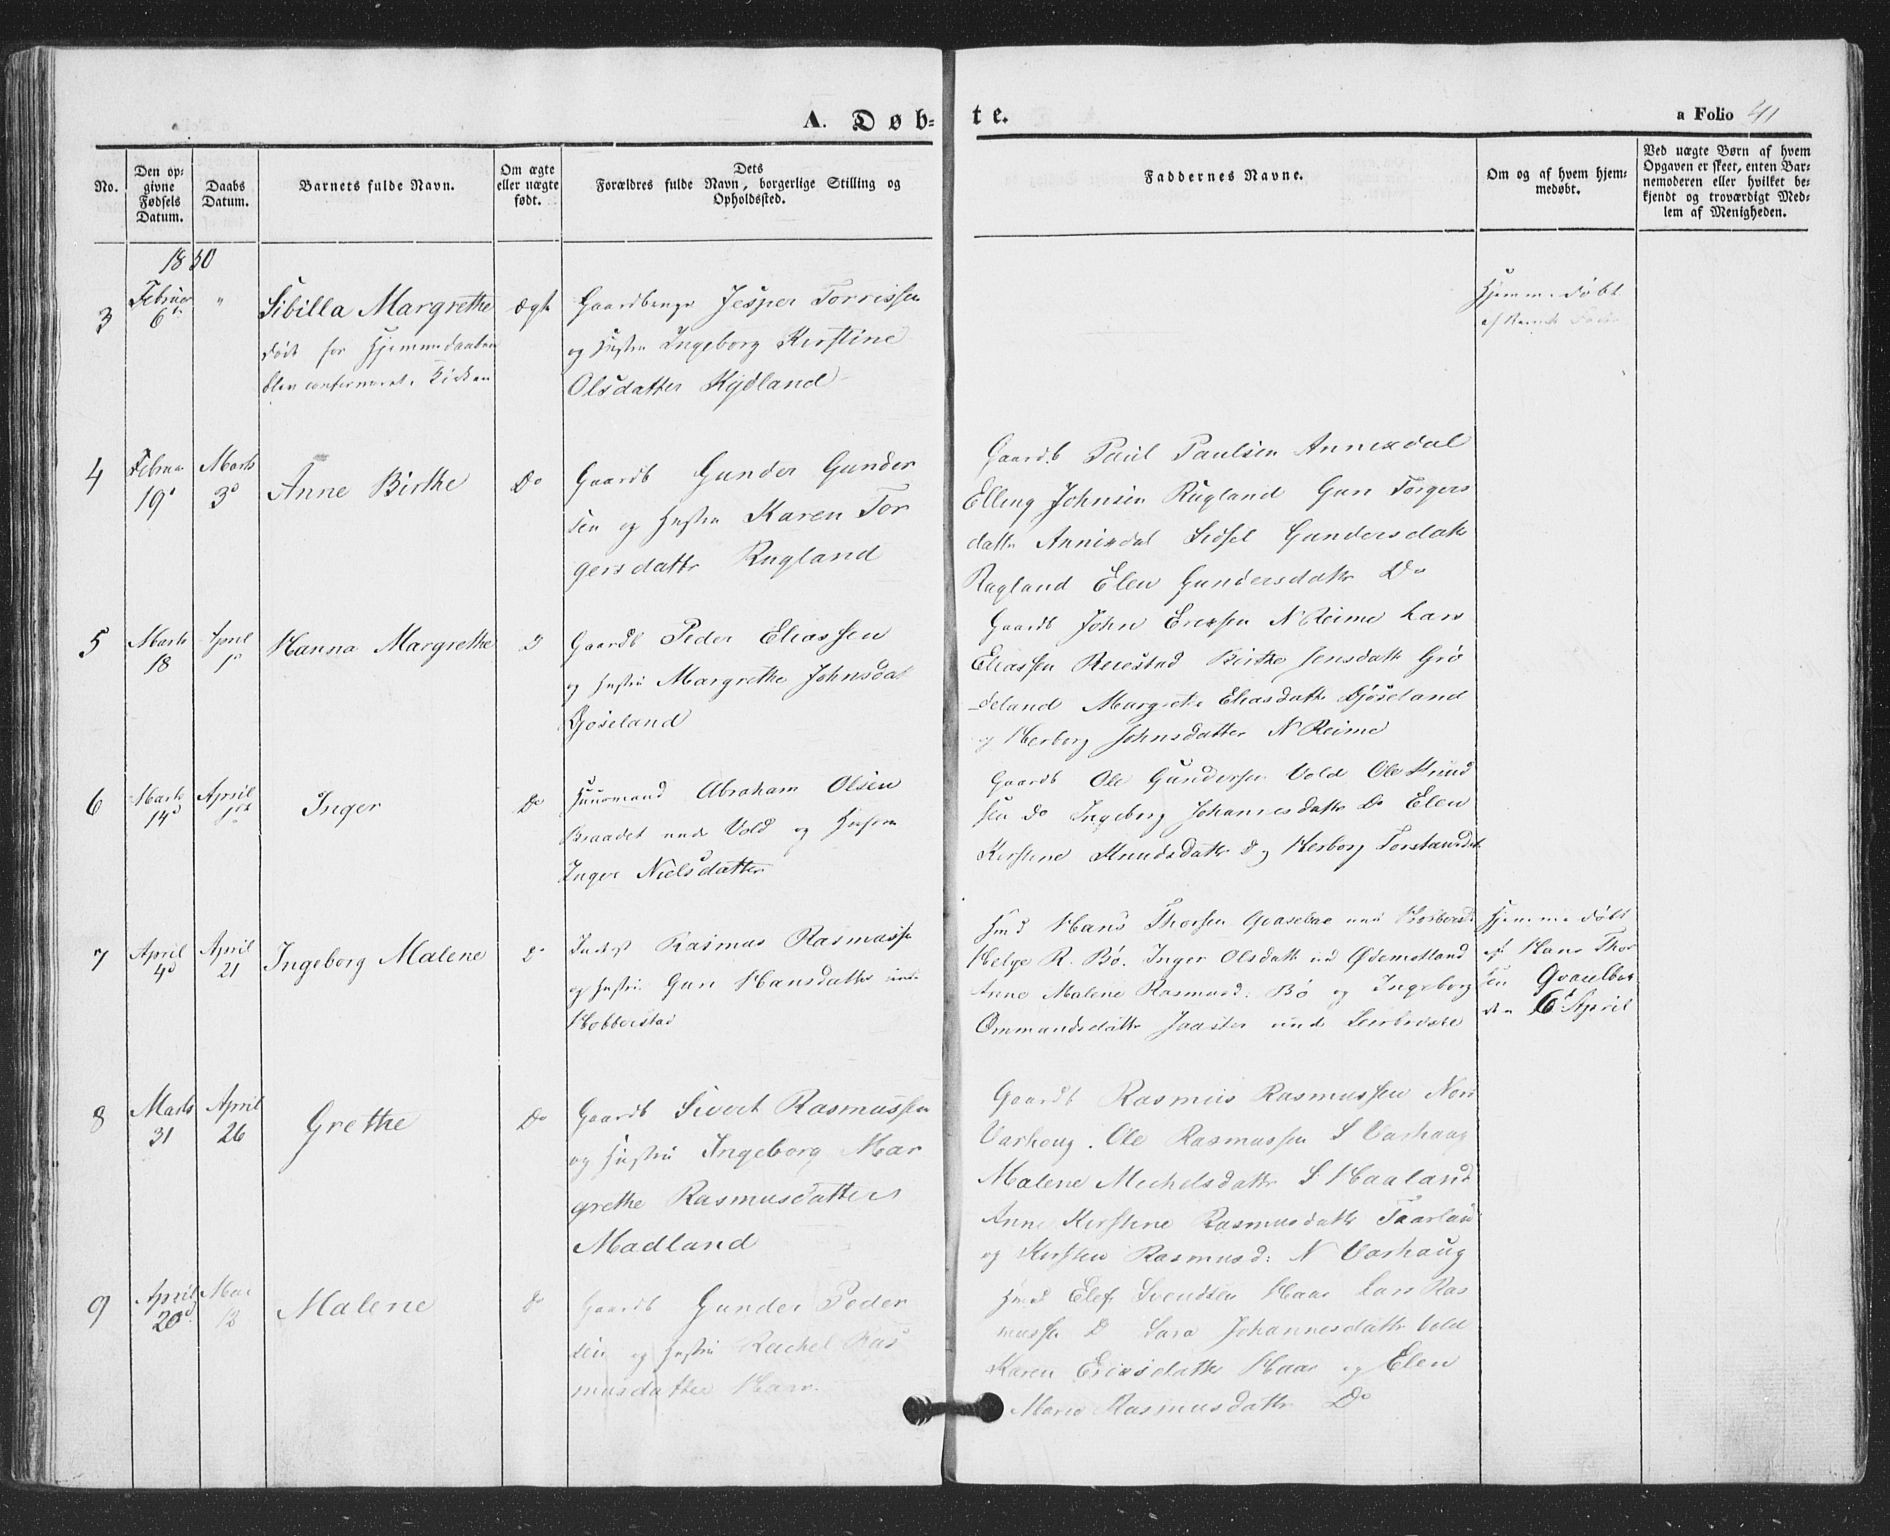 A. Døb- te.
a Folio 41
No.
Den op-
givne
Fødsels
Datum.
Daabs
Datum.
Barnets fulde Navn.
Om ægte
eller uægte
født.
Dets
Forældres fulde Navn, borgerlige Stilling og
Opholdssted.
Faddernes Navne.
Om og af hvem hjem-
medøbt.
Ved uægte Børn af hvem
Opgaven er skeet, enten Bar-
nemoderen eller hvilket be-
kjendt og troværdigt Med-
lem af Menigheden.
1850
3
Februar
6
"
Sibilla Margrethe
død før Hjemmedaaben
blev confirmeret i Kirken
ægte
Jesper Torrissen
og Hustru Ingeborg Kirstine
Olsdatter Kydland
Hjemmedøbt
af
4
Februar
19
Marts
3
Anne Birthe
Do
Gaardb Gunder Gunder
sen og Hustru Karen Tor
gersdattr Rugland
Gaardb Paul Paulsen Annisdal
Elling Johnsen Rugland Guri Torgers
dattr Annisdal Sidsel Gundersdattr
Rugland Elen Gundersdattr Do
5
Marts
18
April
1
Hanna Margrethe
D
Gaardb Peder Eliassen
og Hustru Margrethe Johnsdat
Gjøseland
Gaardb John Ericsen N Reime Lars
Eliassen Reiestad Birthe Jensdattr Grø
deland Margrete Eliasdattr Gjøseland
og Herborg Johnsdatter N Reime
6
Marts
14
April
1st
Inger
Do
Huusmand Abraham Olsen
Braadet unde Vold og Hustru
Inger Nielsdatter
Gaardb Ole Gundersen Vold Ole Knud
sen Do Ingeborg Johannesdattr Do Elen
Kirstine Knudsdattr D og Herborg Torstensdat
7
April
4
April
21
Ingeborg Malene
Do
Inderst Rasmus Rasmussen
og Hustru Guri Hansdatter unde
Hobberstad
Hmd Hans Thorsen und Hobberstad
Helge R. Bø. Inger Olsdattr und Ødemotland
Anne Malene Rasmusd. Bø og Ingeborg
Ommundsdattr unde
Hjemmedøbt
af Hans Thor
sen
den 6 April
8
Marts
31
April
26
Grethe
Do
Gaardb Sivert Rasmussen
og Hustru Ingeborg Mar
grethe Rasmusdatter
Madland
Gaardb Rasmus Rasmussen Nor
Varhoug. Ole Rasmussen S Varhaug
Malene Michelsdattr S Haaland
Anne Kirstine Rasmusdattr Taarland
og Kirsten Rasmusd: N Varhaug
9
April
20
Mai
12
Malene
Do
Gaardb Gunder Peder
sen og Hustru Rachel Ras
musdatter Haar.
Hmd Elef Svendsen Haar Lars Ras
mussen D Sara Johannesdattr Vold
Karen Ericsdattr Haar og Elen
Maria Rasmusdattr Do